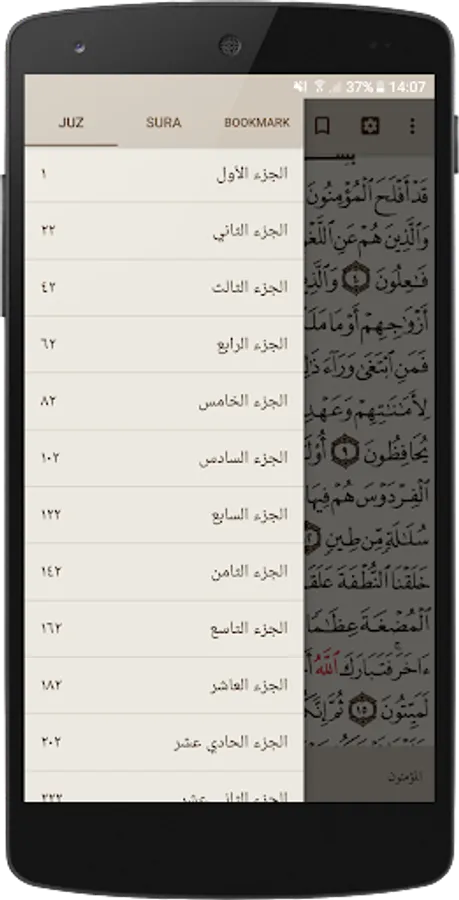 37% 14:07
JUZ SURA BOOKMARK
الجزء الأول ١
الجزء الثاني ٢٢
الجزء الثالث ٤٢
الجزء الرابع ٦٢
الجزء الخامس ٨٢
الجزء السادس ١٠٢
الجزء السابع ١٢٢
الجزء الثامن ١٤٢
الجزء التاسع ١٦٢
الجزء العاشر ١٨٢
الجزء الحادي عشر ٢٠٢
الجزء الثاني عشر ٢٢٢
قَدْ أَفْلَحَ ٱلْمُؤْمِنُونَ
وَٱلَّذِينَ هُمْ عَنِ ٱللَّغْوِ
فَٰعِلُونَ ٤ وَٱلَّذِ
أَزْوَٰجِهِمْ أَوْ مَا مَلَ
فَمَنِ ٱبْتَغَىٰ وَرَآءَ ذَٰلِ
لِأَمَٰنَٰتِهِمْ وَعَهْدِ
يُحَافِظُونَ ٩ أُو۟لَ
ٱلْفِرْدَوْسَ هُمْ فِيهَا
سُلَٰلَةٍ مِّن طِينٍ
خَلَقْنَا ٱلنُّطْفَةَ عَلَقَ
ٱلْمُضْغَةَ عِظَٰمًا
ءَاخَرَ فَتَبَارَكَ ٱللَّهُ أَ
لَمَيِّتُونَ ١٥ ثُمَّ إِنَّكُ
المؤمنون